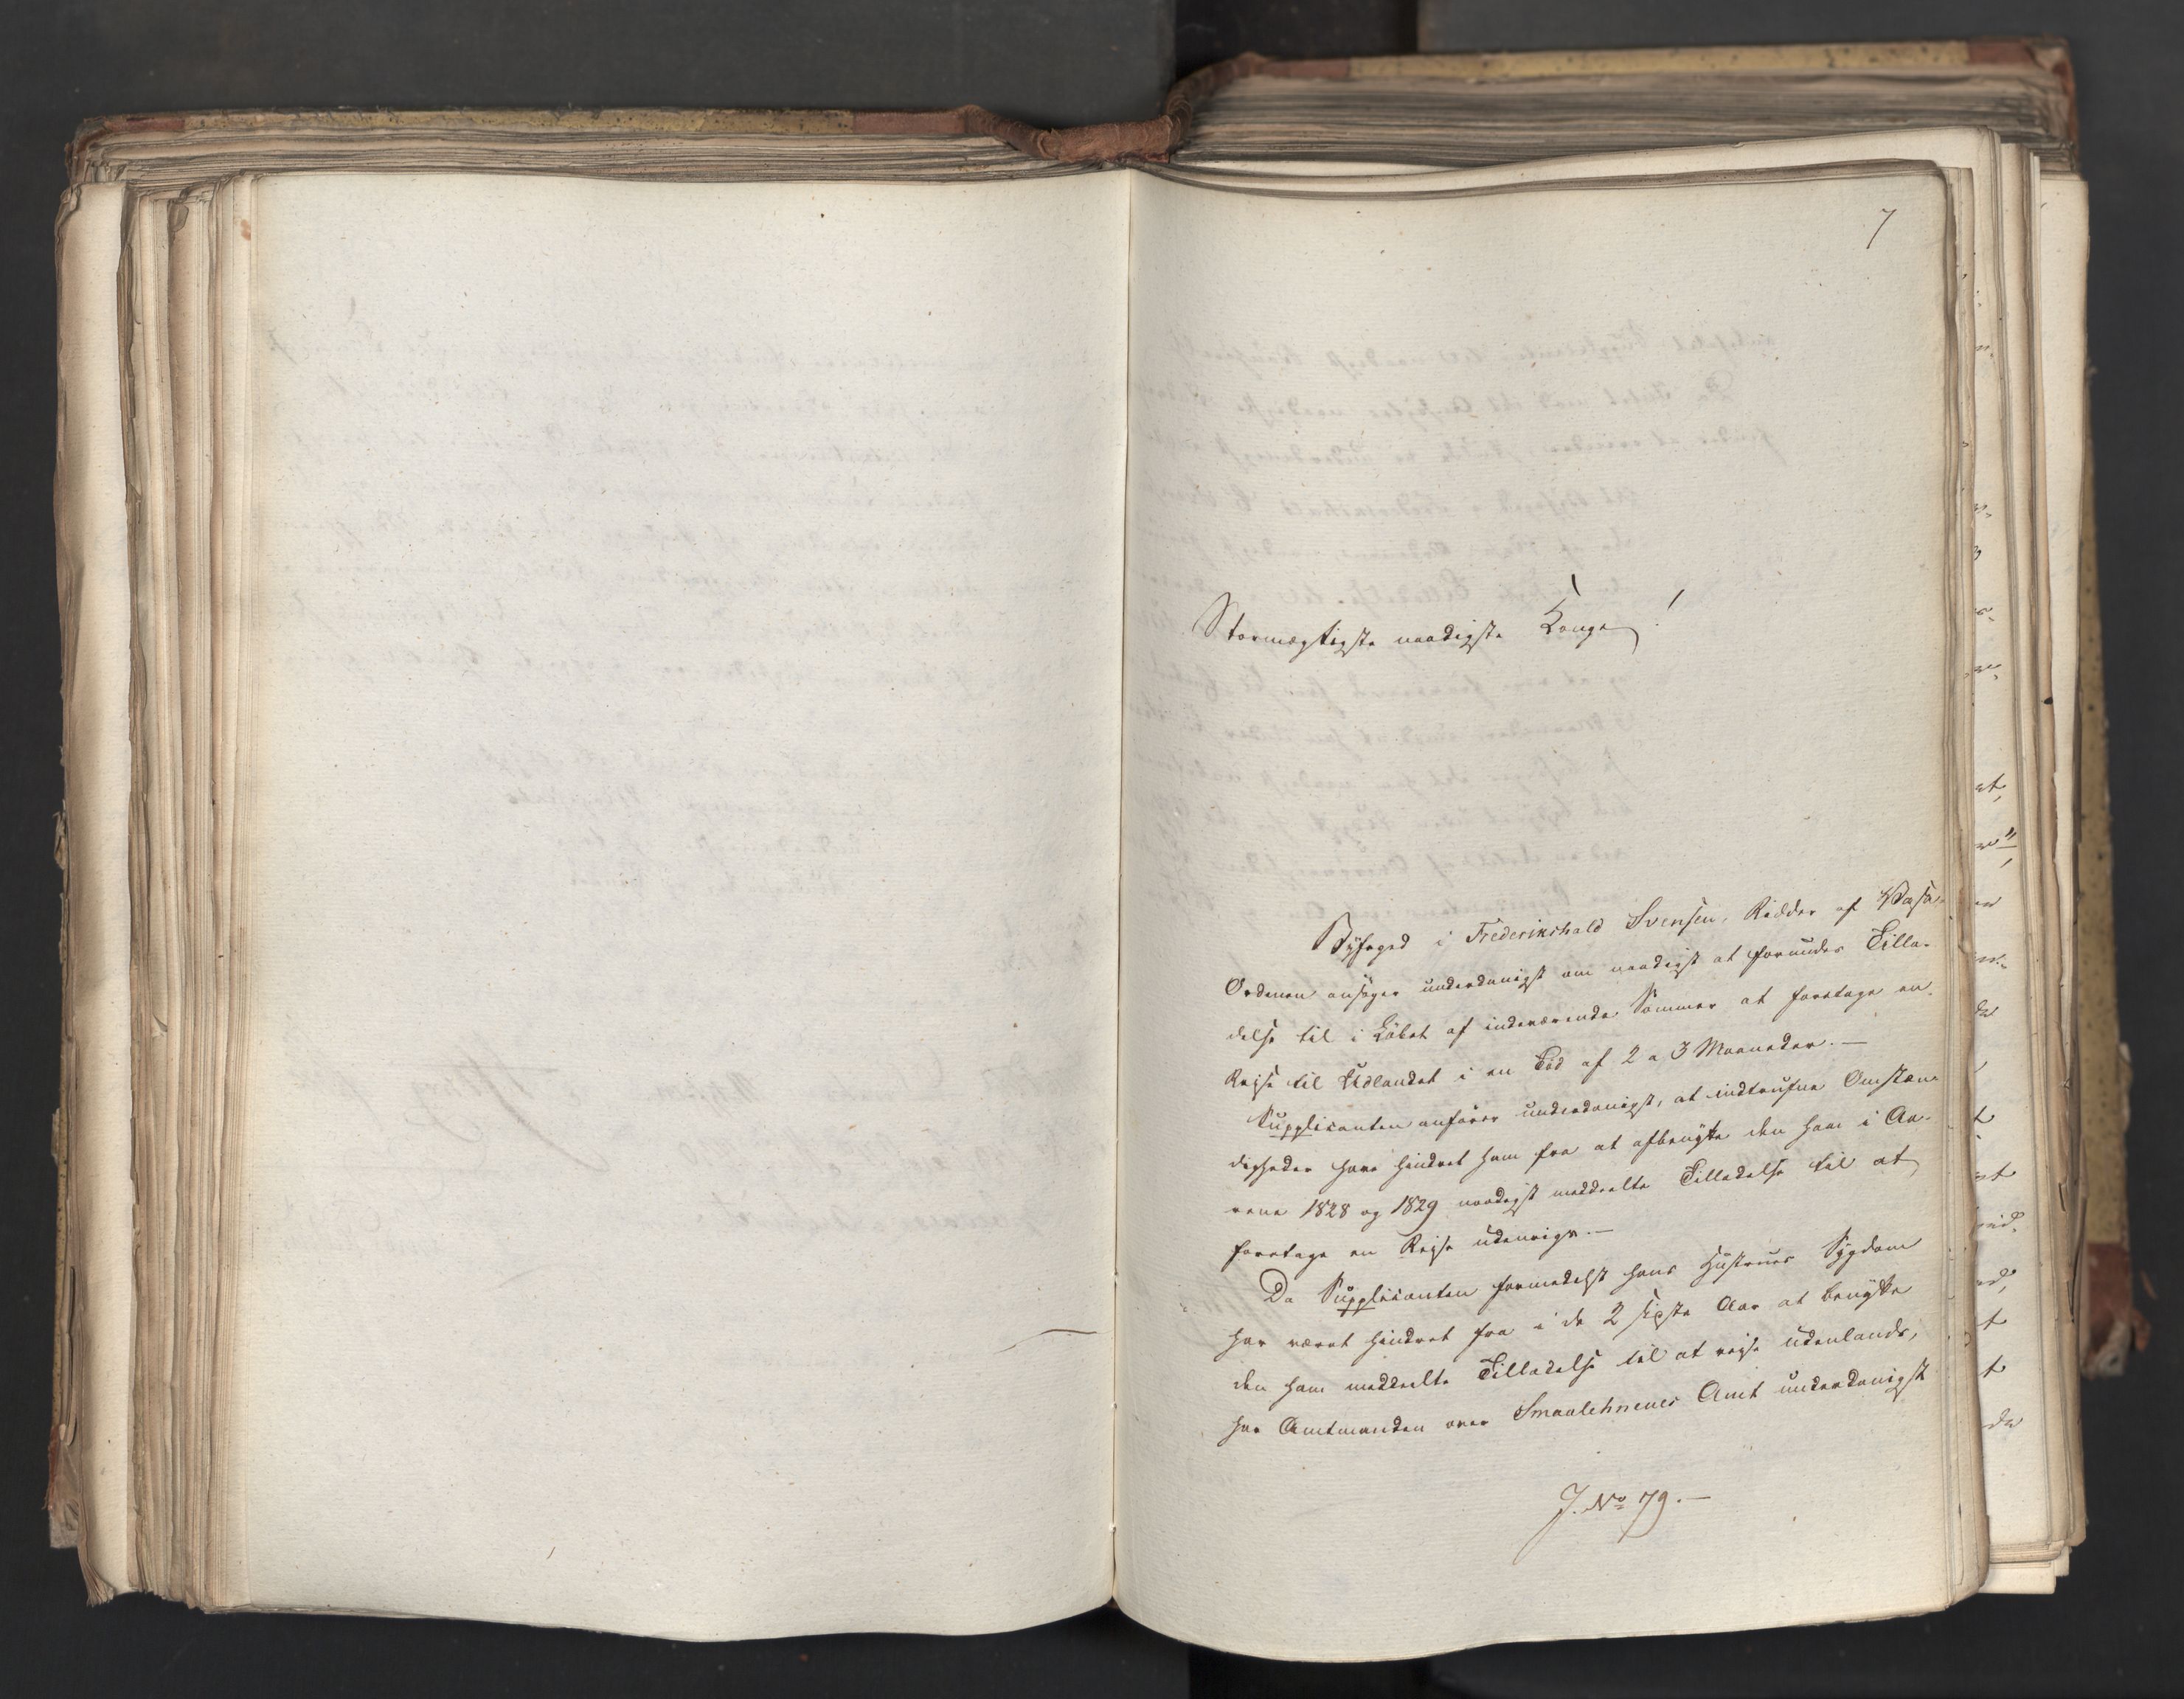 7
Stormægtigste naadigste Konge!
Byfoged i Frederikshald Svensen, Ridder af Wasa-
Ordenen ansøger underdanigst om naadigst at forundes Tilla-
delse til i Løbet af indeværende Sommer at foretage en
Rejse til Udlandet i en Tid af 2 a 3 Maaneder. —
Supplicanten anfører underdanigst, at indtrufne Omstæn-
digheder have hindret ham fra at afbenytte den ham i Aa-
rene 1828 og 1829 naadigst meddeelte Tilladelse til at
foretage en Rejse udenrigs. —
Da Supplicanten formedelst hans Hustrues Sygdom
har været hindret fra i de 2 sidste Aar at benytte
den ham meddeelte Tilladelse til at rejse udenlands,
har Amtmanden over Smaalehnenes Amt underdanigst
J. No 79. —